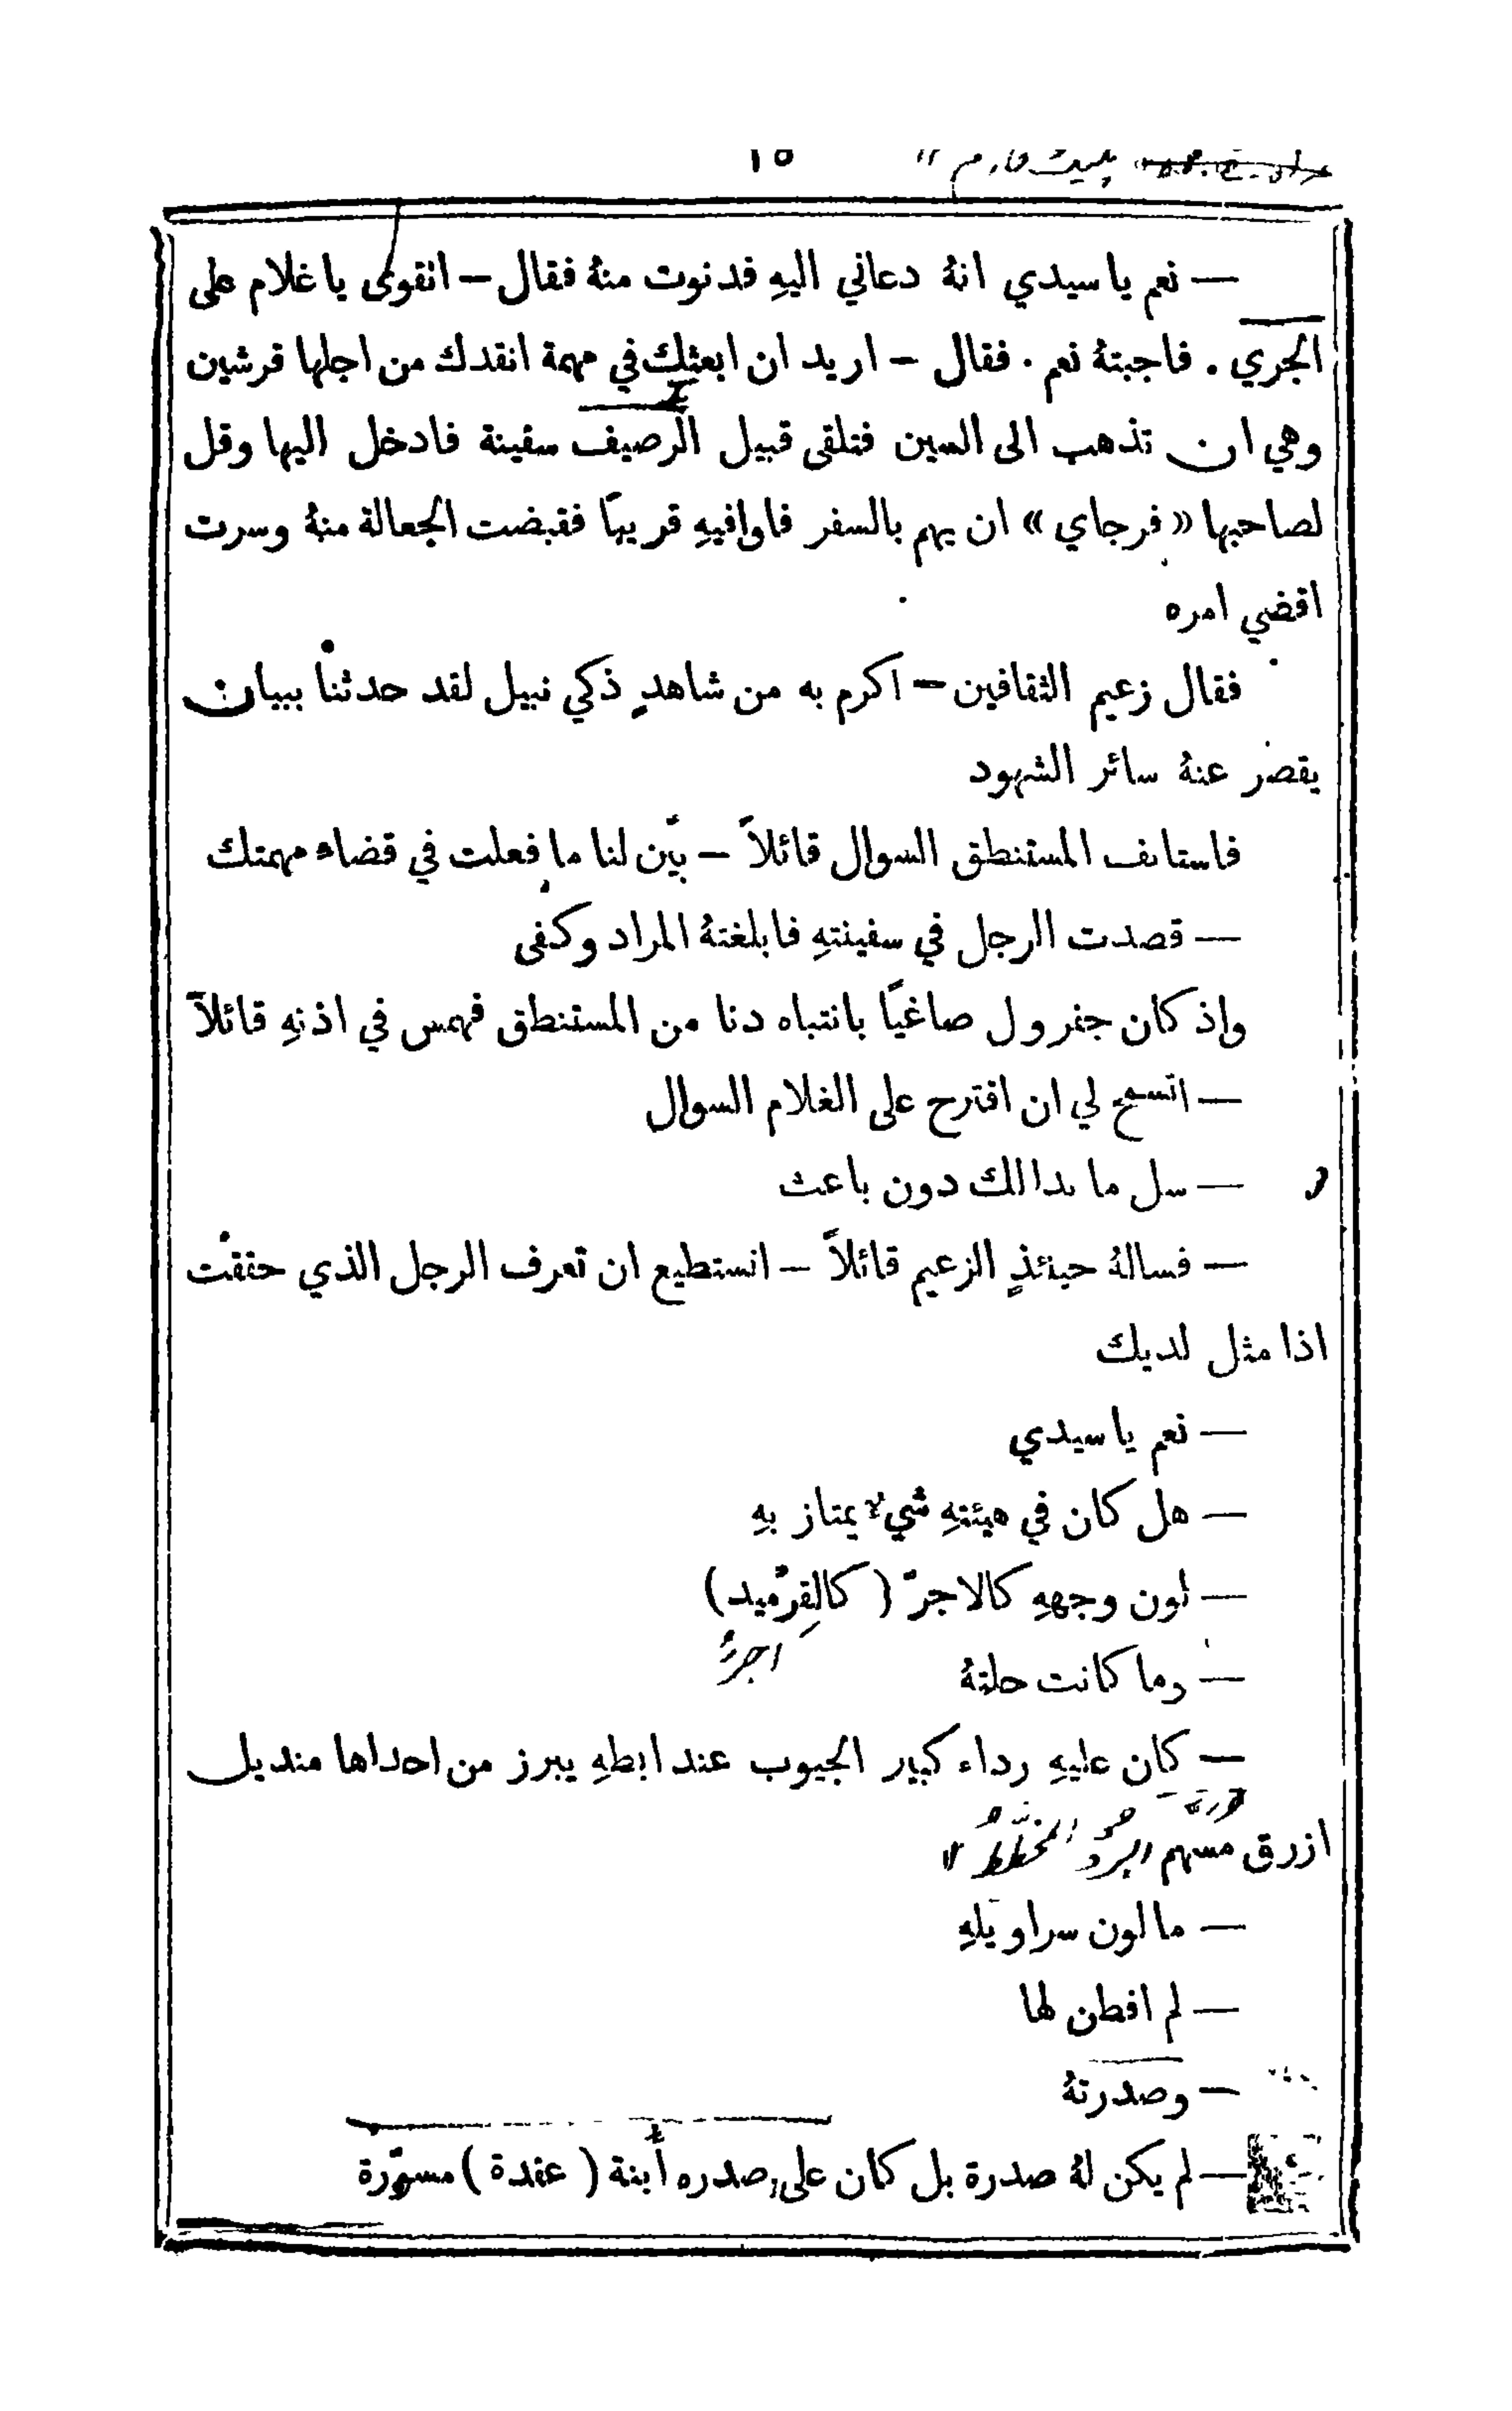 ١٥
— نعم يا سيدي انهُ دعاني اليهِ فدنوت منهُ فقال — اتقوى يا غلام على
الجري . فاجبتهُ نعم . فقال — اريد ان ابعثك في مهمة انقدك من اجلها قرشين
وهي ان تذهب الى السين فتلقى قبيل الرصيف سفينة فادخل اليها وقل
لصاحبها « فرجاي » ان يهم بالسفر فاوافيهِ قريبًا فقبضت الجعالة منهُ وسرت
اقضي امره
فقال زعيم الثقافين — اكرم به من شاهدٍ ذكي نبيل لقد حدثنا ببيان
يقصر عنهُ سائر الشهود
فاستانف المستنطق السوال قائلاً — بيّن لنا ما فعلت في قضاء مهمتك
— قصدت الرجل في سفينتهِ فابلغتهُ المراد وكفى
واذ كان جفرول صاغيًا بانتباه دنا من المستنطق فهمس في اذنهِ قائلاً
— اتسمح لي ان اقترح على الغلام السوال
— سل ما بدا لك دون باعث
— فسالهُ حينئذٍ الزعيم قائلاً — اتستطيع ان تعرف الرجل الذي حققت
اذا مثل لديك
— نعم يا سيدي
— هل كان في هيئتهِ شيء يمتاز بهِ
— لون وجههِ كالاجرّ ( كالقِرْميد )
اجرّ
— وما كانت حلتهُ
— كان عليهِ رداء كبير الجيوب عند ابطهِ يبرز من احداها منديل
ازرق مسهم البرد المخطّط
— ما لون سراويلهِ
— لم افطن لها
— وصدرتهُ
— لم يكن لهُ صدرة بل كان على صدره أبنة ( عقدة ) مسوّرة